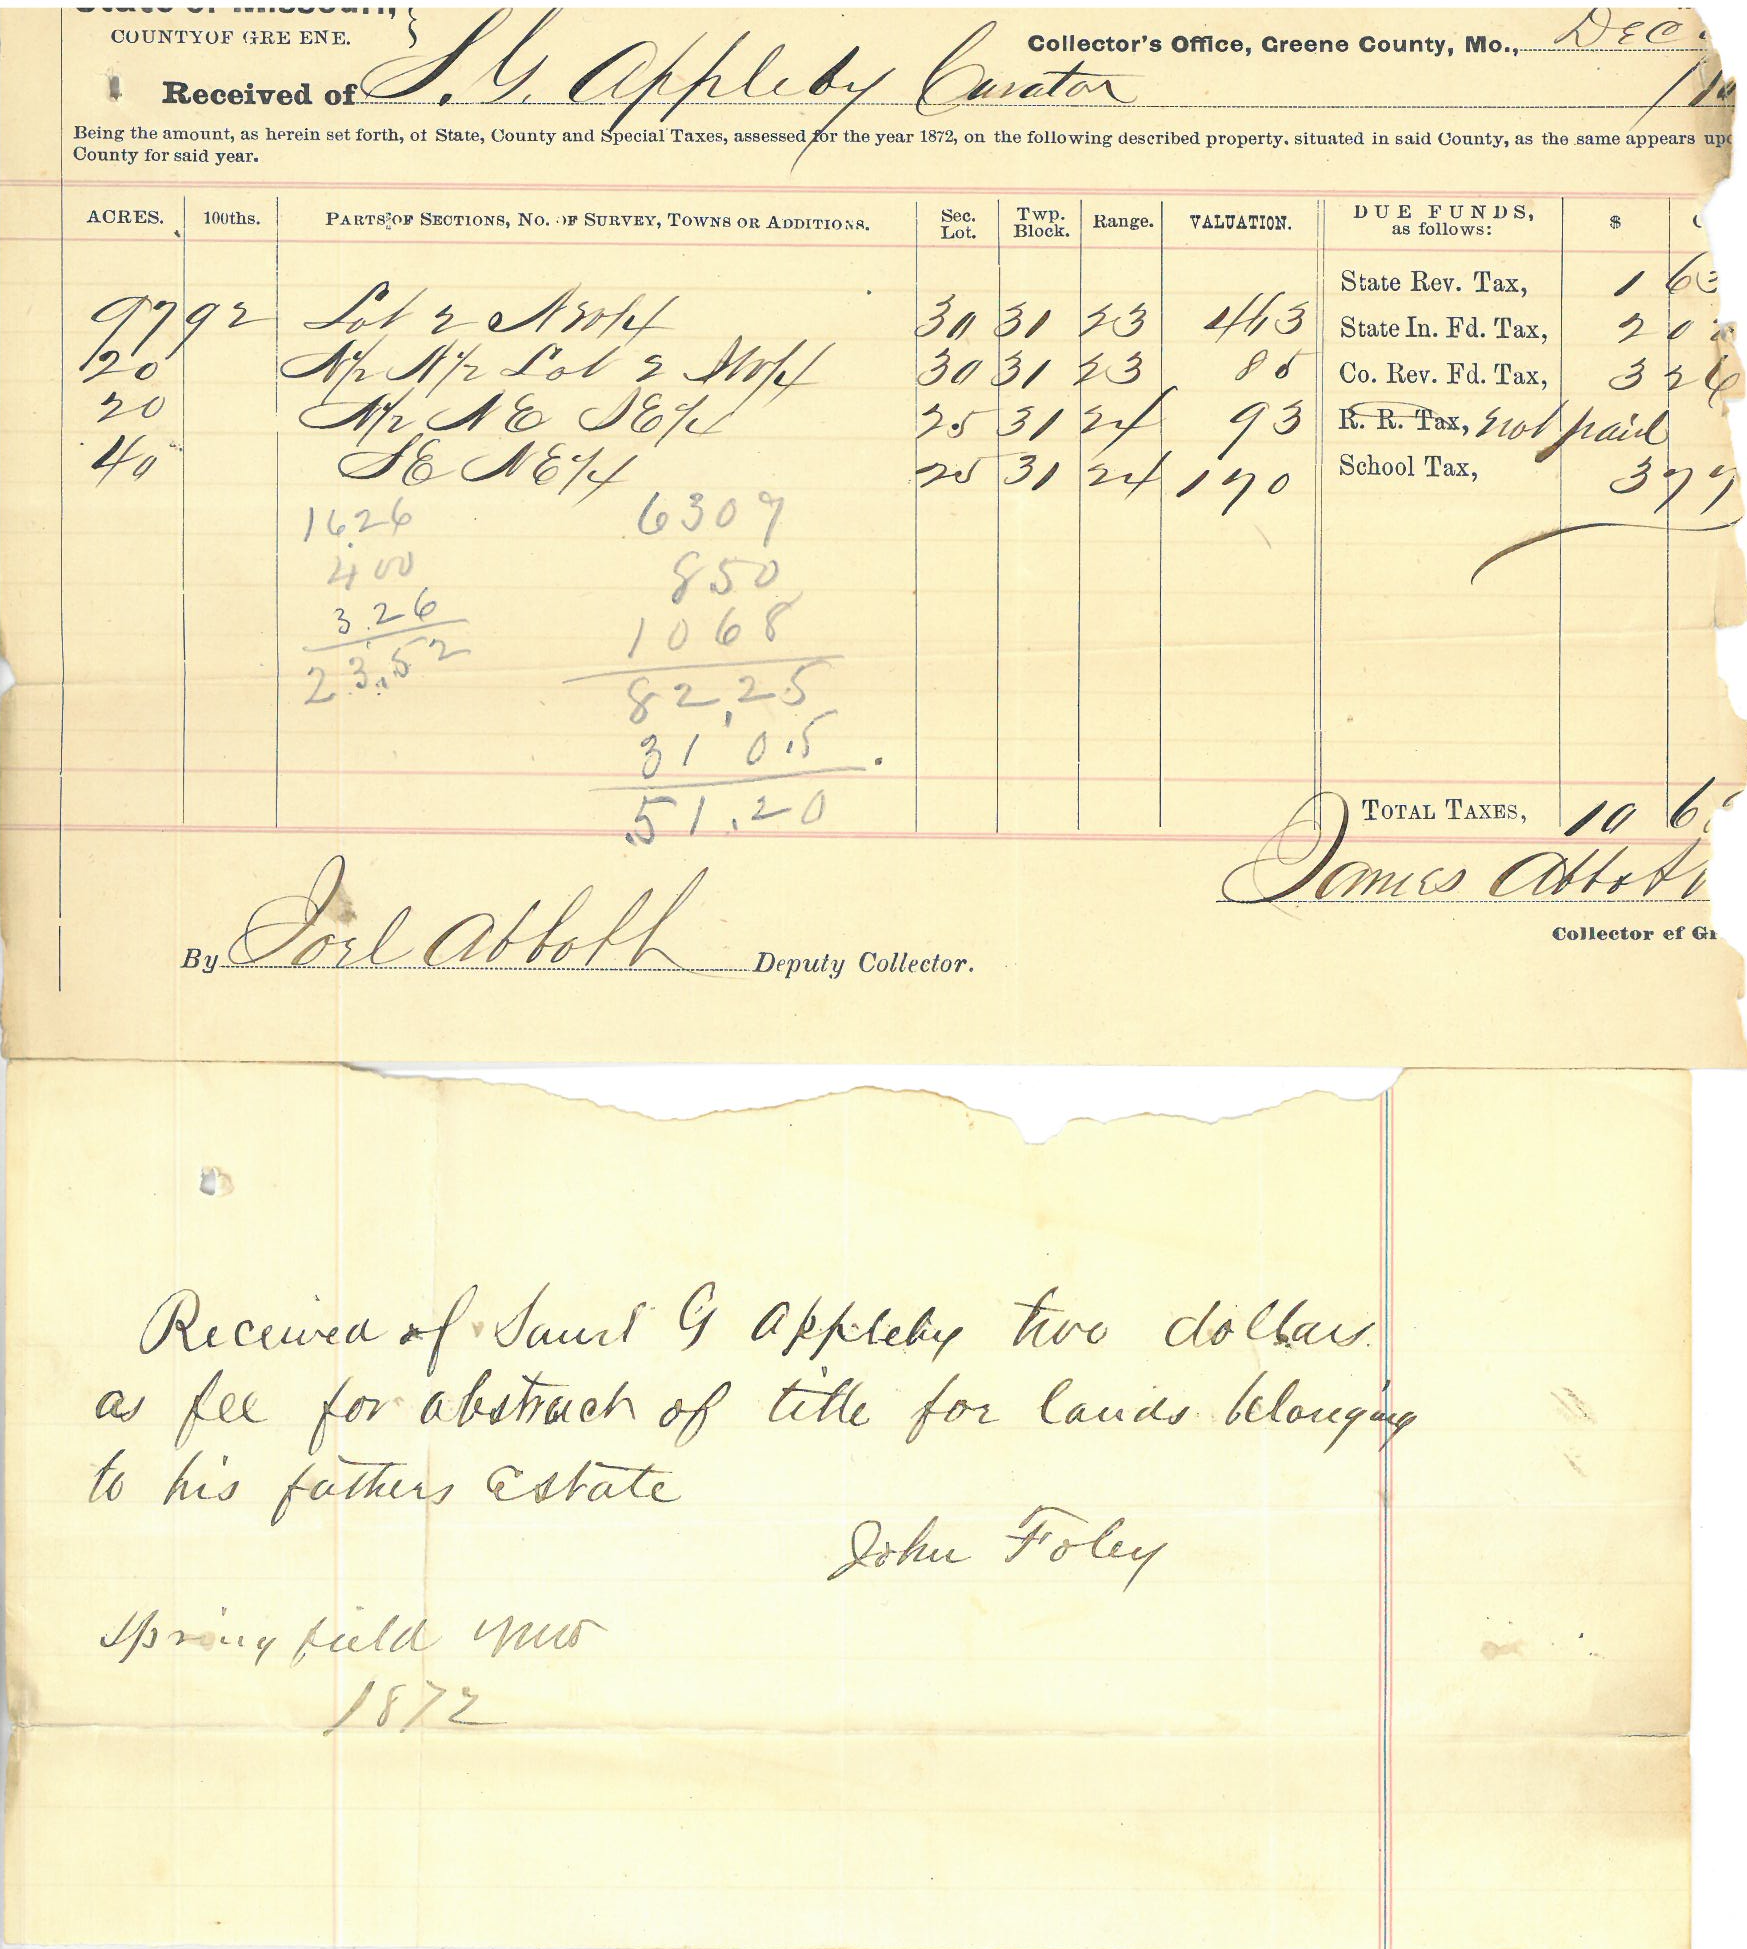 State of Missouri,
COUNTY OF GREENE.
Collector's Office, Greene County, Mo., Dec
Received of S. G. Appleby Curator
Being the amount, as herein set forth, of State, County and Special Taxes, assessed for the year 1872, on the following described property, situated in said County, as the same appears
County for said year.
ACRES. 100ths. PARTS OF SECTIONS, NO. OF SURVEY, TOWNS OR ADDITIONS. Sec. Lot. Twp. Block. Range. VALUATION. DUE FUNDS, as follows: $
State Rev. Tax, 1 63
97 92 Lot 2 NW/4 30 31 23 463 State In. Fd. Tax, 2 0
20 N/2 N/2 Lot 2 SW/4 30 31 23 85 Co. Rev. Fd. Tax, 3 26
20 N/2 NE SE/4 25 31 24 93 R. R. Tax, not paid
40 SE NE/4 25 31 24 170 School Tax, 3 77
16.26 6309
400 850
3.26 1068
23.52 82,25
31 0.5
51.20
TOTAL TAXES, 10 6
James Abbott
Collector of
By Joel Abbott Deputy Collector.
Received of Saml G Appleby two dollars
as fee for abstract of title for lands belonging
to his fathers Estate
John Foley
Springfield Mo
1872